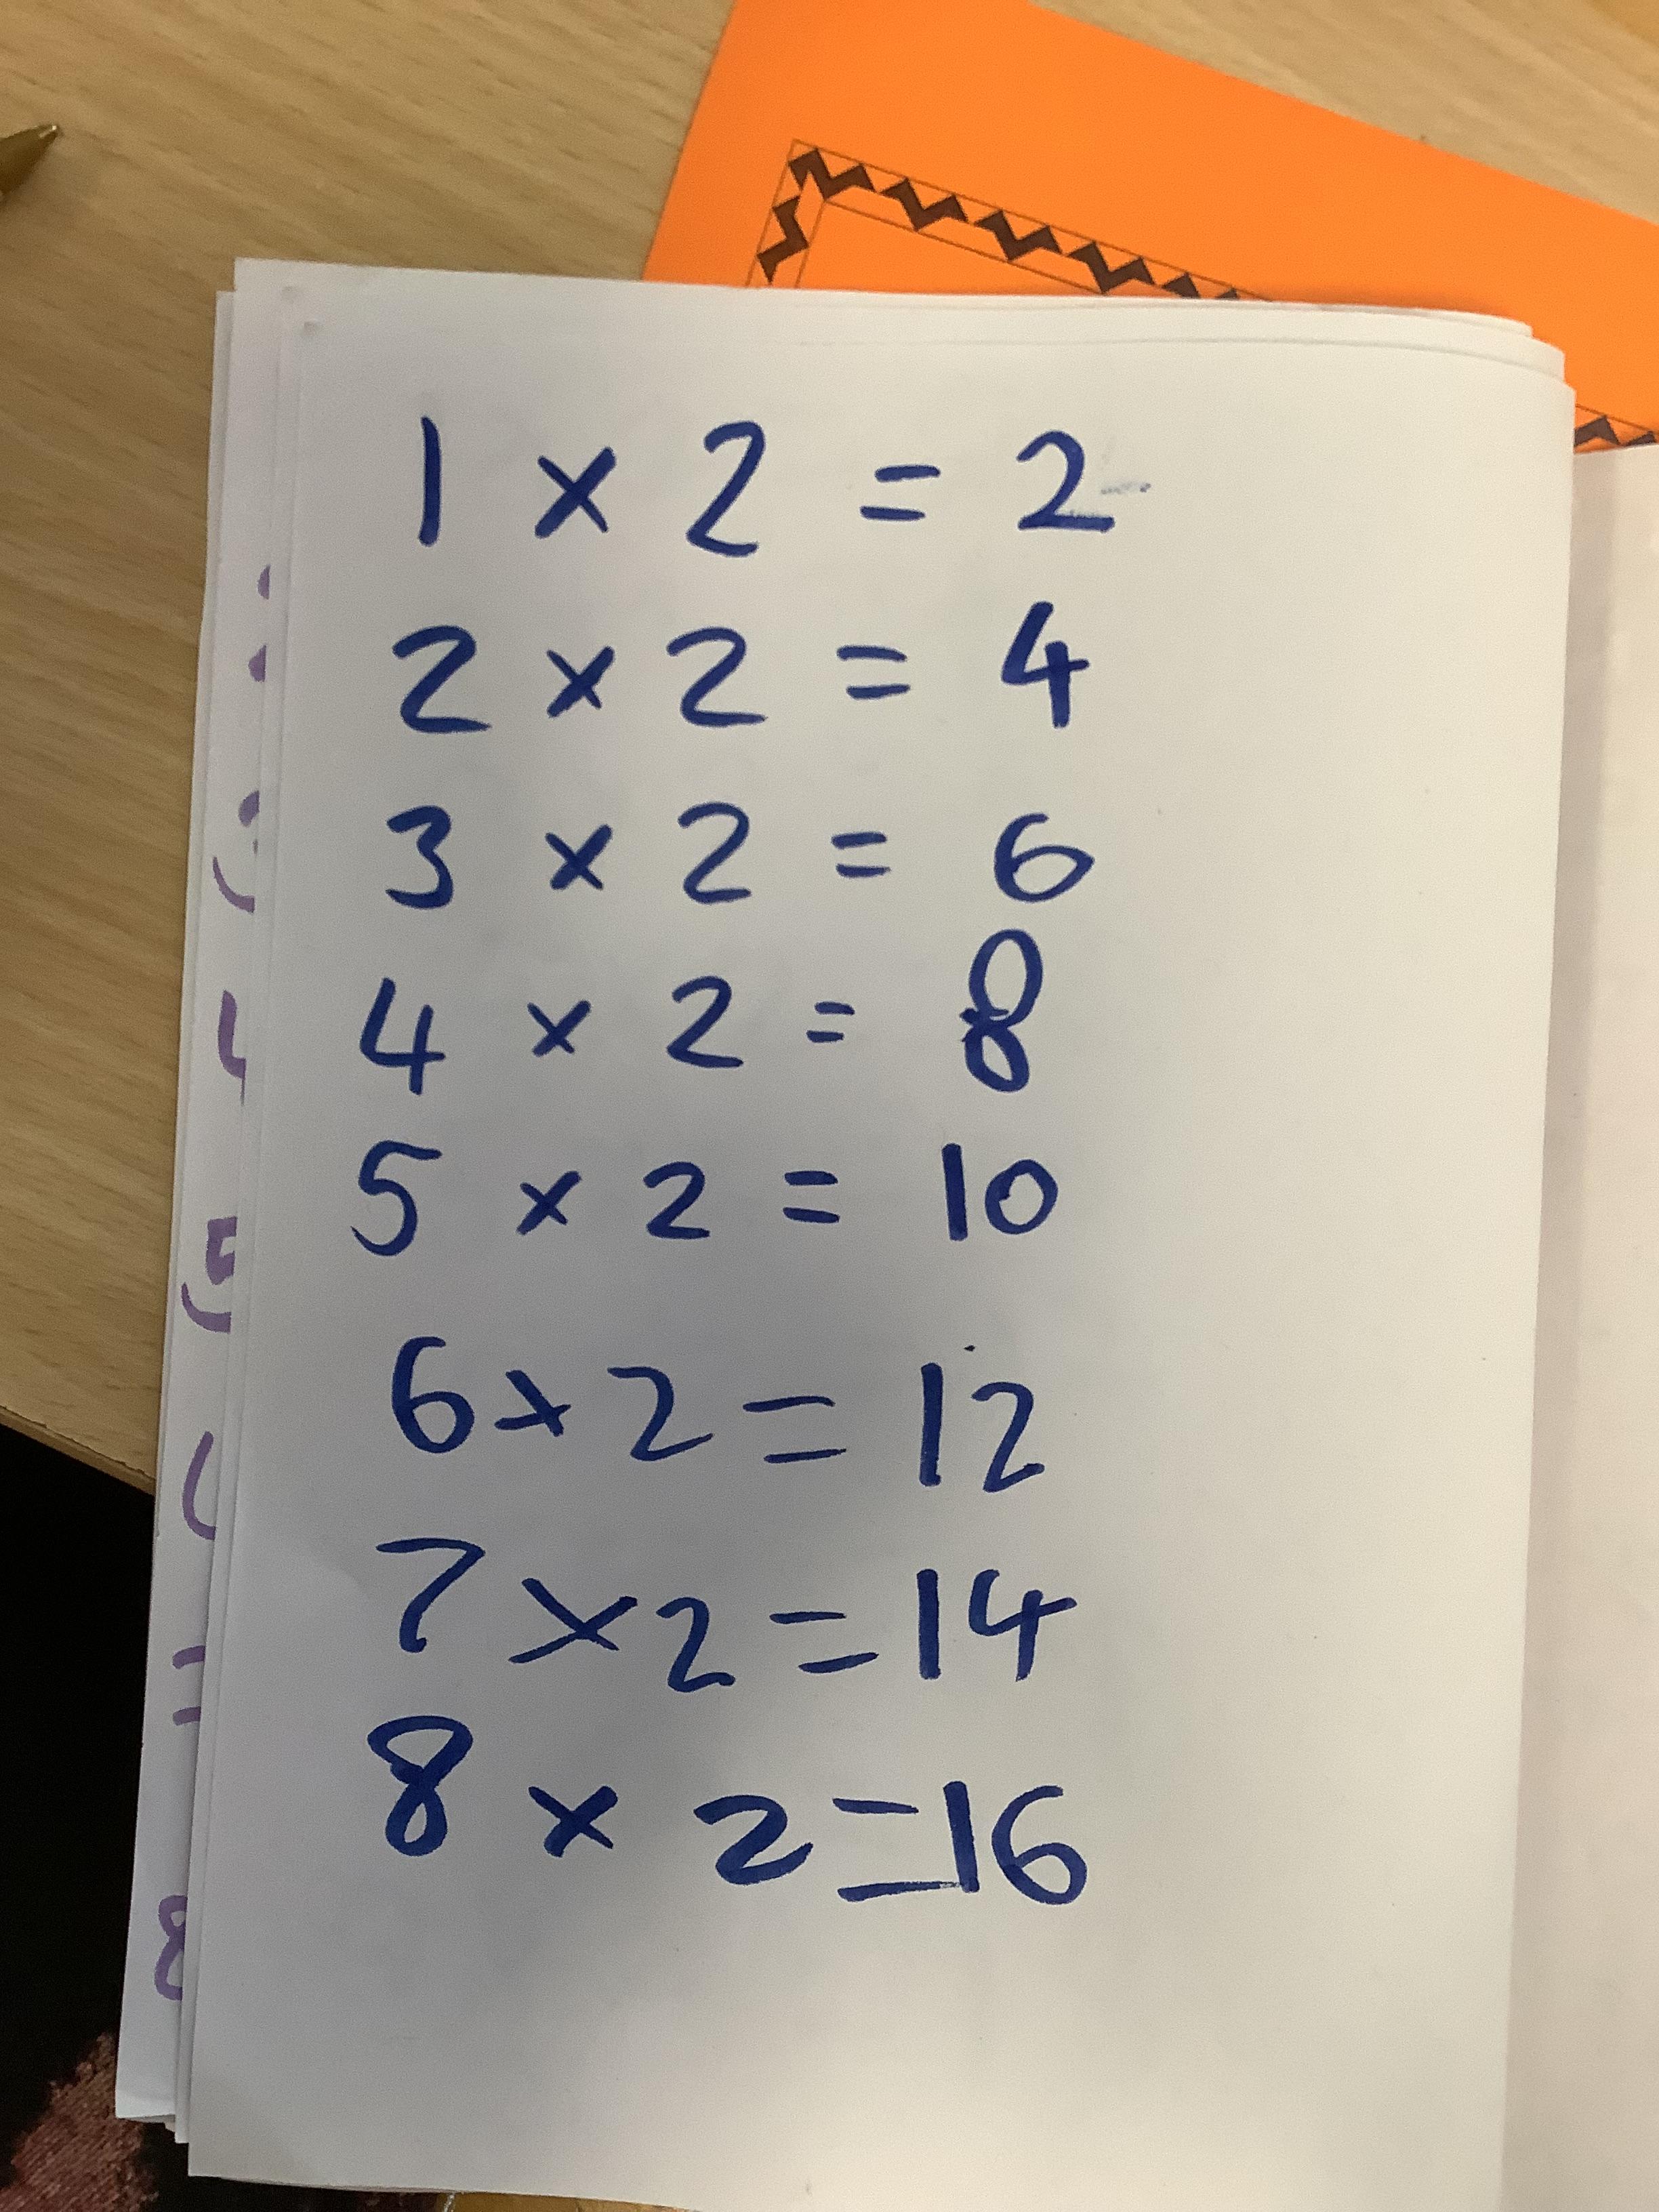 1 × 2 = 2
2 × 2 = 4
3 × 2 = 6
4 × 2 = 8
5 × 2 = 10
6 × 2 = 12
7 × 2 = 14
8 × 2 = 16